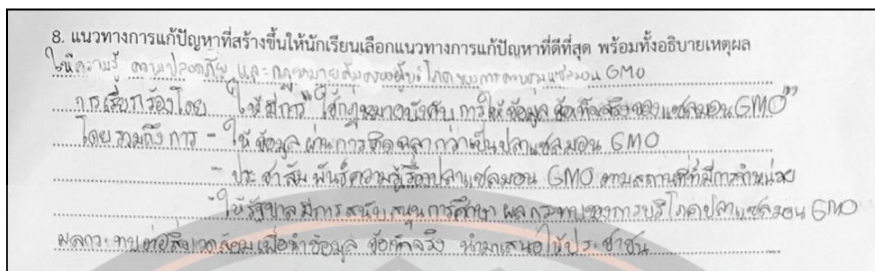 8. แนวทางการแก้ปัญหาที่สร้างขึ้นให้นักเรียนเลือกแนวทางการแก้ปัญหาที่ดีที่สุด พร้อมทั้งอธิบายเหตุผล
ให้ความรู้ ความปลอดภัย และกฎหมายคุ้มครองผู้บริโภค แซลมอน GMO
การเรียกร้องโดย "ให้มีการ ใช้กฎหมายบังคับ การให้ข้อมูล ข้อเท็จจริงของแซลมอน GMO"
โดยรวมถึง การ - ให้ข้อมูลผ่านการติดฉลากว่าเป็นปลาแซลมอน GMO
- ประชาสัมพันธ์ความรู้เรื่องปลาแซลมอน GMO ตามสถานที่ที่มีการจำหน่าย
- ให้รัฐบาลมีการสนับสนุนการศึกษา ผลกระทบของการบริโภคปลาแซลมอน GMO
ผลกระทบต่อสิ่งแวดล้อมเพื่อนำข้อมูล ข้อเท็จจริง นำมาเสนอให้ประชาชน